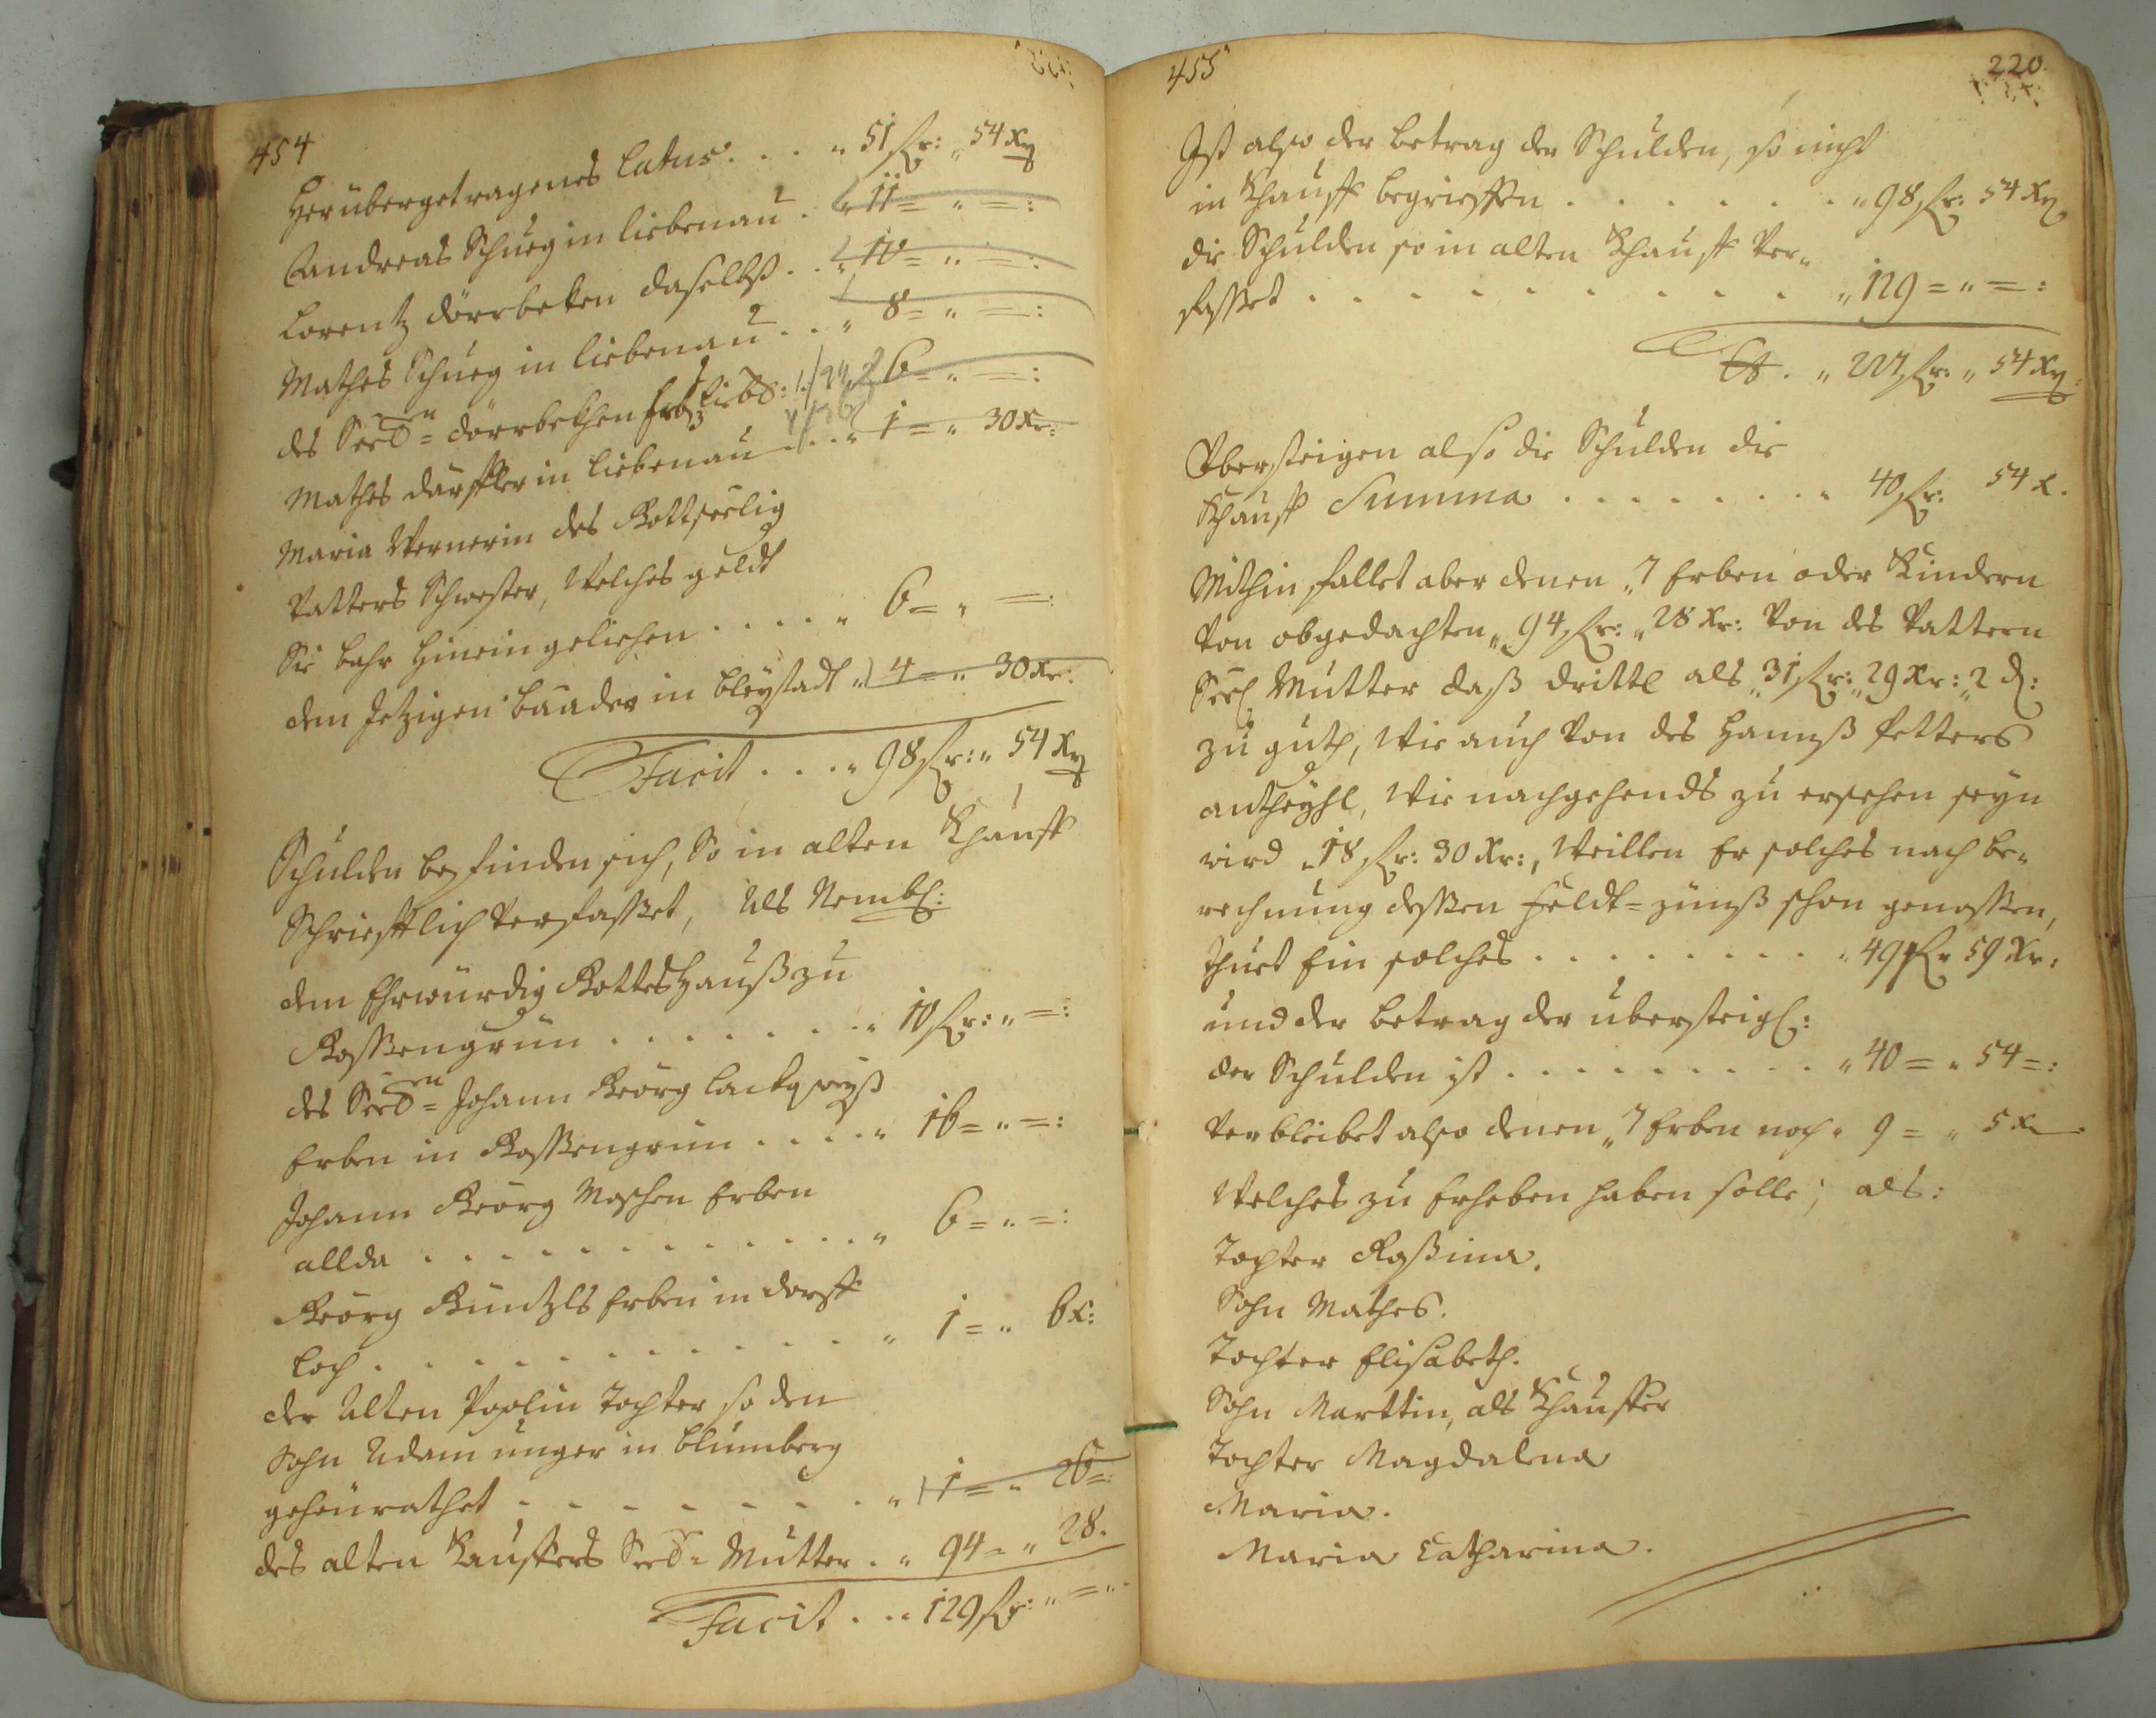 454
Herübergetragenes Latus . . . „ 51 fr: „ 54 Xr
Andreas Schueg in Liebenau . „ 11 = „ = :
Lorentz dörrbeken daselbst . . „ 10 = „ = :
Mathes Schueg in Liebenau . . „ 8 = „ = :
des Seel: dörrbekhen Erb 6 = „ = :
Mathes därffler in Liebenau . . „ 1 = „ 30 Xr:
Maria Wernerin des Gottseelig
Vatters Schwester, Welches geldt
Sie bahr hinein geliehen . . . . . „ 6 = „ = :
dem Jetzigen Baader in Bleystadt „ 4 = „ 30 Xr:
Facit . . . „ 98 fr: „ 54 Xr
Schulden befinden sich, So in alten Khauff
Schriefftlich Verfasset, Als Nembl:
dem Ehrwürdig Gotteshauß zu
Gossengrün . . . . . . . „ 10 fr: „ = :
des Seel: Johann Geörg
Erben in Gossengrün . . . . „ 16 = „ = :
Johann Geörg Maschen Erben
allda . . . . . . . . . . . . „ 6 = „ = :
Geörg Küntzls Erben in dorff
Loch . . . . . . . . . . . „ 1 = „ 6 x:
der Alten Poplin Tochter so den
Sohn Adam Unger in Blumberg
geheürathet . . . . . . . . „ 1 = „ 26 = :
des alten Kauffers Seel: Mutter . „ 94 = „ 28 .
Facit . . „ 129 fr: „ = „
455
220.
Ist also der Betrag der Schulden, so nicht
in Khauff begrieffen . . . . . . . „ 98 fr: 54 Xr
die Schulden so in alten Khauff Ver„
fasset . . . . . . . . . . „ 129 = „ = :
„ 227 fr: „ 54 Xr
Übersteigen also die Schulden die
Khauff Summa . . . . . . . . „ 40 fr: 54 x.
Mithin fallet aber denen „ 7 Erben oder Kindern
Von obgedachten „ 94 fr: „ 28 Xr: Von des Vattern
Seel Mutter daß drittl als „ 31 fr: „ 29 Xr: „ 2 d:
zu guth, Wie auch Von des Hannß Petters
antheyhl, Wie nachgehends zu ersehen seyn
wird „ 18 fr: 30 Xr:, Weillen Er solches nach be„
rechnung dessen Feldt = zünß schon genossen,
thuet Ein solches . . . . . . . . . „ 49 fr 59 Xr:
und der Betrag der übersteigl:
der Schulden ist . . . . . . . . . . „ 40 = „ 54 = :
Verbleibet also denen „ 7 Erben noch „ 9 = „ 5 x
Welches zu Erheben haben solle; als:
Tochter Roßina.
Sohn Mathes.
Tochter Elisabeth.
Sohn Marttin, als Khauffer
Tochter Magdalena
Maria.
Maria Catharina.